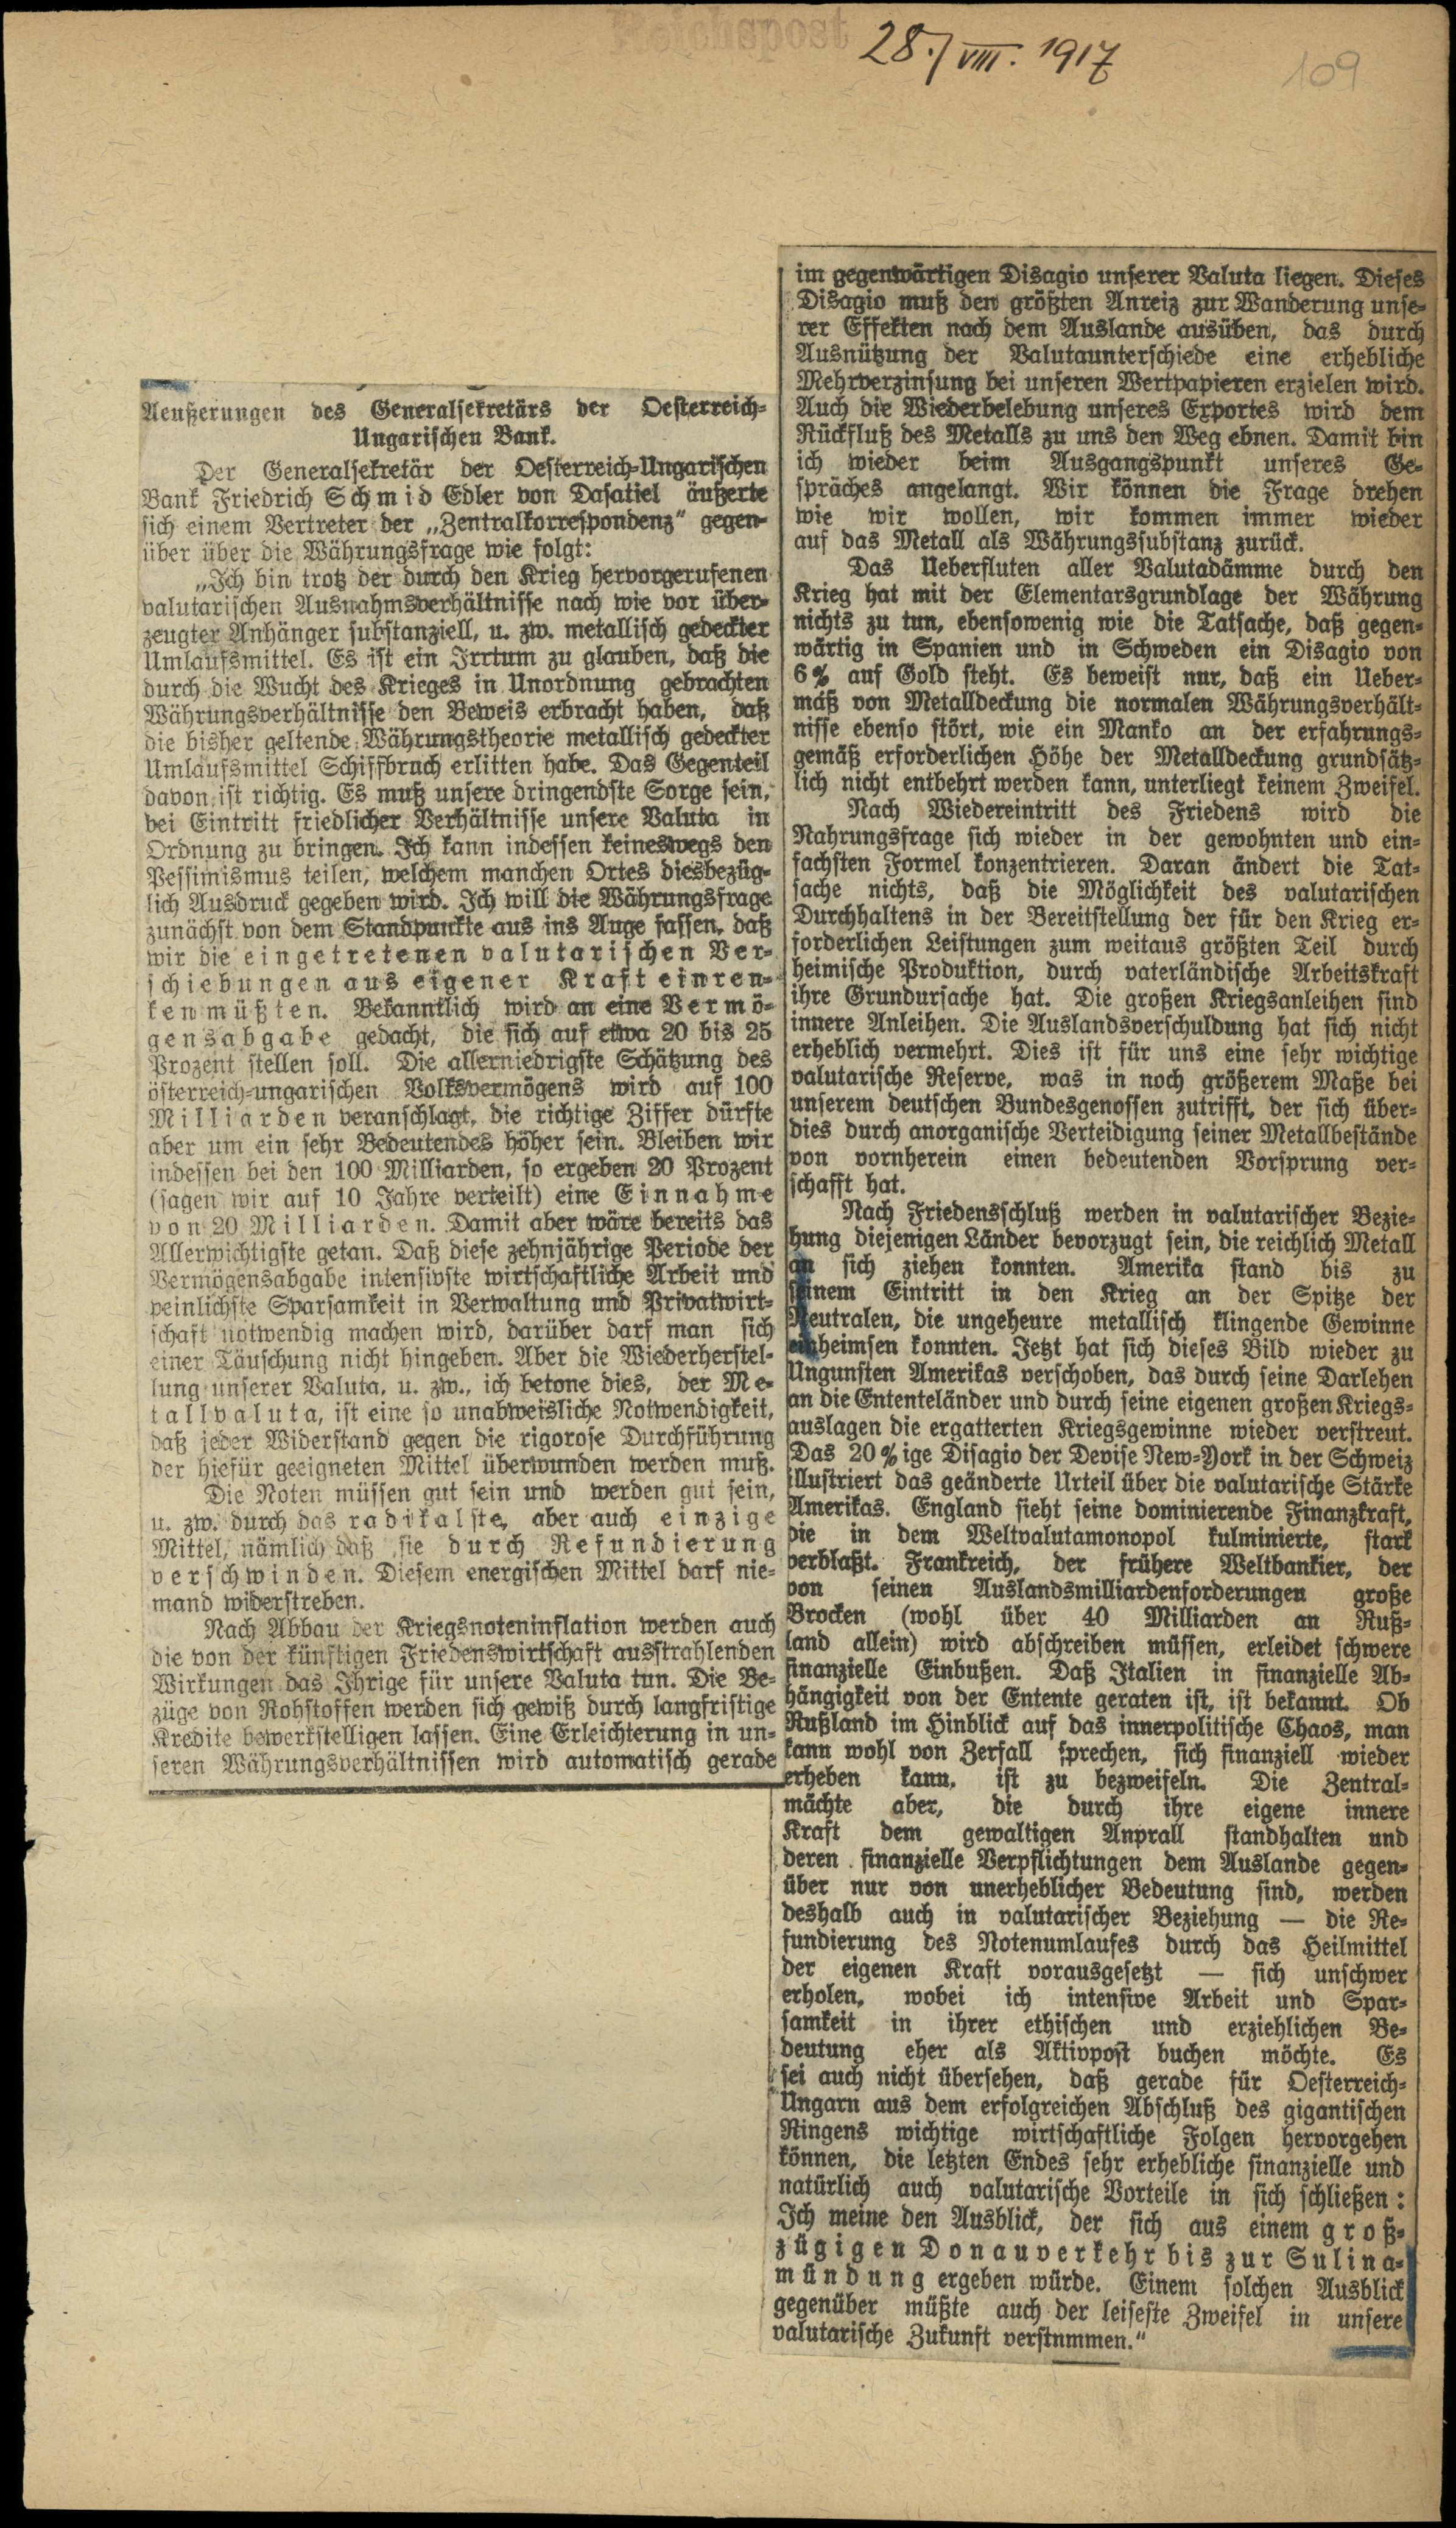 Reichspost
28./VIII. 1917
109
Aeußerungen des Generalsekretärs der Oesterreich-
Ungarischen Bank.
Der Generalsekretär der Oesterreich-Ungarischen
Bank Friedrich Schmid Edler von Dasatiel äußerte
sich einem Vertreter der „Zentralkorrespondenz" gegen-
über über die Währungsfrage wie folgt:
„Ich bin trotz der durch den Krieg hervorgerufenen
valutarischen Ausnahmsverhältnisse nach wie vor über-
zeugter Anhänger substanziell, u. zw. metallisch gedeckter
Umlaufsmittel. Es ist ein Irrtum zu glauben, daß die
durch die Wucht des Krieges in Unordnung gebrachten
Währungsverhältnisse den Beweis erbracht haben, daß
die bisher geltende Währungstheorie metallisch gedeckter
Umlaufsmittel Schiffbruch erlitten habe. Das Gegenteil
davon ist richtig. Es muß unsere dringendste Sorge sein,
bei Eintritt friedlicher Verhältnisse unsere Valuta in
Ordnung zu bringen. Ich kann indessen keineswegs den
Pessimismus teilen, welchem manchen Ortes diesbezüg-
lich Ausdruck gegeben wird. Ich will die Währungsfrage
zunächst von dem Standpunkte aus ins Auge fassen, daß
wir die eingetretenen valutarischen Ver-
schiebungen aus eigener Kraft einren-
ken müßten. Bekanntlich wird an eine Vermö-
gensabgabe gedacht, die sich auf etwa 20 bis 25
Prozent stellen soll. Die allerniedrigste Schätzung des
österreich-ungarischen Volksvermögens wird auf 100
Milliarden veranschlagt, die richtige Ziffer dürfte
aber um ein sehr Bedeutendes höher sein. Bleiben wir
indessen bei den 100 Milliarden, so ergeben 20 Prozent
(sagen wir auf 10 Jahre verteilt) eine Einnahme
von 20 Milliarden. Damit aber wäre bereits das
Allerwichtigste getan. Daß diese zehnjährige Periode der
Vermögensabgabe intensivste wirtschaftliche Arbeit und
peinlichste Sparsamkeit in Verwaltung und Privatwirt-
schaft notwendig machen wird, darüber darf man sich
einer Täuschung nicht hingeben. Aber die Wiederherstel-
lung unserer Valuta, u. zw., ich betone dies, der Me-
tallvaluta, ist eine so unabweisliche Notwendigkeit,
daß jeder Widerstand gegen die rigorose Durchführung
der hiefür geeigneten Mittel überwunden werden muß.
Die Noten müssen gut sein und werden gut sein,
u. zw. durch das radikalste, aber auch einzige
Mittel, nämlich daß sie durch Refundierung
verschwinden. Diesem energischen Mittel darf nie-
mand widerstreben.
Nach Abbau der Kriegsnoteninflation werden auch
die von der künftigen Friedenswirtschaft ausstrahlenden
Wirkungen das Ihrige für unsere Valuta tun. Die Be-
züge von Rohstoffen werden sich gewiß durch langfristige
Kredite bewerkstelligen lassen. Eine Erleichterung in un-
seren Währungsverhältnissen wird automatisch gerade
im gegenwärtigen Disagio unserer Valuta liegen. Dieses
Disagio muß den größten Anreiz zur Wanderung unse-
rer Effekten nach dem Auslande ausüben, das durch
Ausnützung der Valutaunterschiede eine erhebliche
Mehrverzinsung bei unseren Wertpapieren erzielen wird.
Auch die Wiederbelebung unseres Exportes wird dem
Rückfluß des Metalls zu uns den Weg ebnen. Damit bin
ich wieder beim Ausgangspunkt unseres Ge-
spräches angelangt. Wir können die Frage drehen
wie wir wollen, wir kommen immer wieder
auf das Metall als Währungssubstanz zurück.
Das Ueberfluten aller Valutadämme durch den
Krieg hat mit der Elementarsgrundlage der Währung
nichts zu tun, ebensowenig wie die Tatsache, daß gegen-
wärtig in Spanien und in Schweden ein Disagio von
6% auf Gold steht. Es beweist nur, daß ein Ueber-
maß von Metalldeckung die normalen Währungsverhält-
nisse ebenso stört, wie ein Manko an der erfahrungs-
gemäß erforderlichen Höhe der Metalldeckung grundsätz-
lich nicht entbehrt werden kann, unterliegt keinem Zweifel.
Nach Wiedereintritt des Friedens wird die
Nahrungsfrage sich wieder in der gewohnten und ein-
fachsten Formel konzentrieren. Daran ändert die Tat-
sache nichts, daß die Möglichkeit des valutarischen
Durchhaltens in der Bereitstellung der für den Krieg er-
forderlichen Leistungen zum weitaus größten Teil durch
heimische Produktion, durch vaterländische Arbeitskraft
ihre Grundursache hat. Die großen Kriegsanleihen sind
innere Anleihen. Die Auslandsverschuldung hat sich nicht
erheblich vermehrt. Dies ist für uns eine sehr wichtige
valutarische Reserve, was in noch größerem Maße bei
unserem deutschen Bundesgenossen zutrifft, der sich über-
dies durch anorganische Verteidigung seiner Metallbestände
von vornherein einen bedeutenden Vorsprung ver-
schafft hat.
Nach Friedensschluß werden in valutarischer Bezie-
hung diejenigen Länder bevorzugt sein, die reichlich Metall
an sich ziehen konnten. Amerika stand bis zu
seinem Eintritt in den Krieg an der Spitze der
Neutralen, die ungeheure metallisch klingende Gewinne
einheimsen konnten. Jetzt hat sich dieses Bild wieder zu
Ungunsten Amerikas verschoben, das durch seine Darlehen
an die Ententeländer und durch seine eigenen großen Kriegs-
auslagen die ergatterten Kriegsgewinne wieder verstreut.
Das 20%ige Disagio der Devise New-York in der Schweiz
illustriert das geänderte Urteil über die valutarische Stärke
Amerikas. England sieht seine dominierende Finanzkraft,
die in dem Weltvalutamonopol kulminierte, stark
verblaßt. Frankreich, der frühere Weltbankier, der
von seinen Auslandsmilliardenforderungen große
Brocken (wohl über 40 Milliarden an Ruß-
land allein) wird abschreiben müssen, erleidet schwere
finanzielle Einbußen. Daß Italien in finanzielle Ab-
hängigkeit von der Entente geraten ist, ist bekannt. Ob
Rußland im Hinblick auf das innerpolitische Chaos, man
kann wohl von Zerfall sprechen, sich finanziell wieder
erheben kann, ist zu bezweifeln. Die Zentral-
mächte aber, die durch ihre eigene innere
Kraft dem gewaltigen Anprall standhalten und
deren finanzielle Verpflichtungen dem Auslande gegen-
über nur von unerheblicher Bedeutung sind, werden
deshalb auch in valutarischer Beziehung — die Re-
fundierung des Notenumlaufes durch das Heilmittel
der eigenen Kraft vorausgesetzt — sich unschwer
erholen, wobei ich intensive Arbeit und Spar-
samkeit in ihrer ethischen und erziehlichen Be-
deutung eher als Aktivpost buchen möchte. Es
sei auch nicht übersehen, daß gerade für Oesterreich-
Ungarn aus dem erfolgreichen Abschluß des gigantischen
Ringens wichtige wirtschaftliche Folgen hervorgehen
können, die letzten Endes sehr erhebliche finanzielle und
natürlich auch valutarische Vorteile in sich schließen:
Ich meine den Ausblick, der sich aus einem groß-
zügigen Donauverkehr bis zur Sulina-
mündung ergeben würde. Einem solchen Ausblick
gegenüber müßte auch der leiseste Zweifel in unsere
valutarische Zukunft verstnmmen."